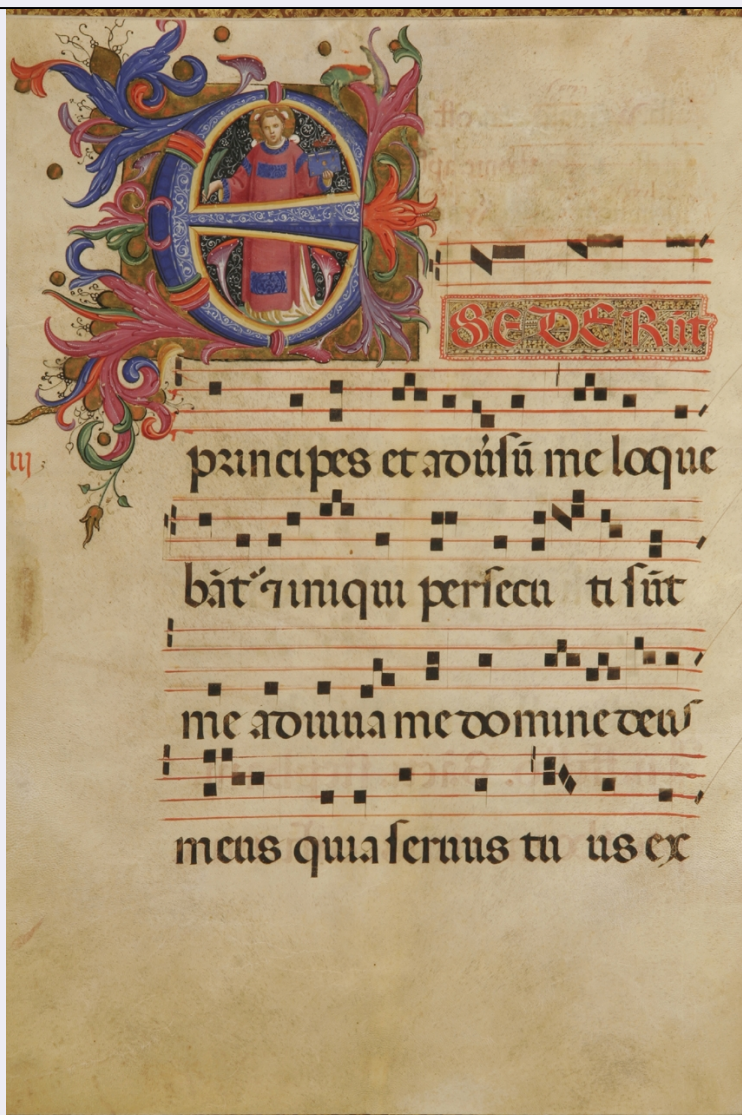 E
SEDERūt
iij
principes et aduersū me loque
bāt et iniqui persecu ti sūt
me adiuua me domine deus
meus quia seruus tu us ex